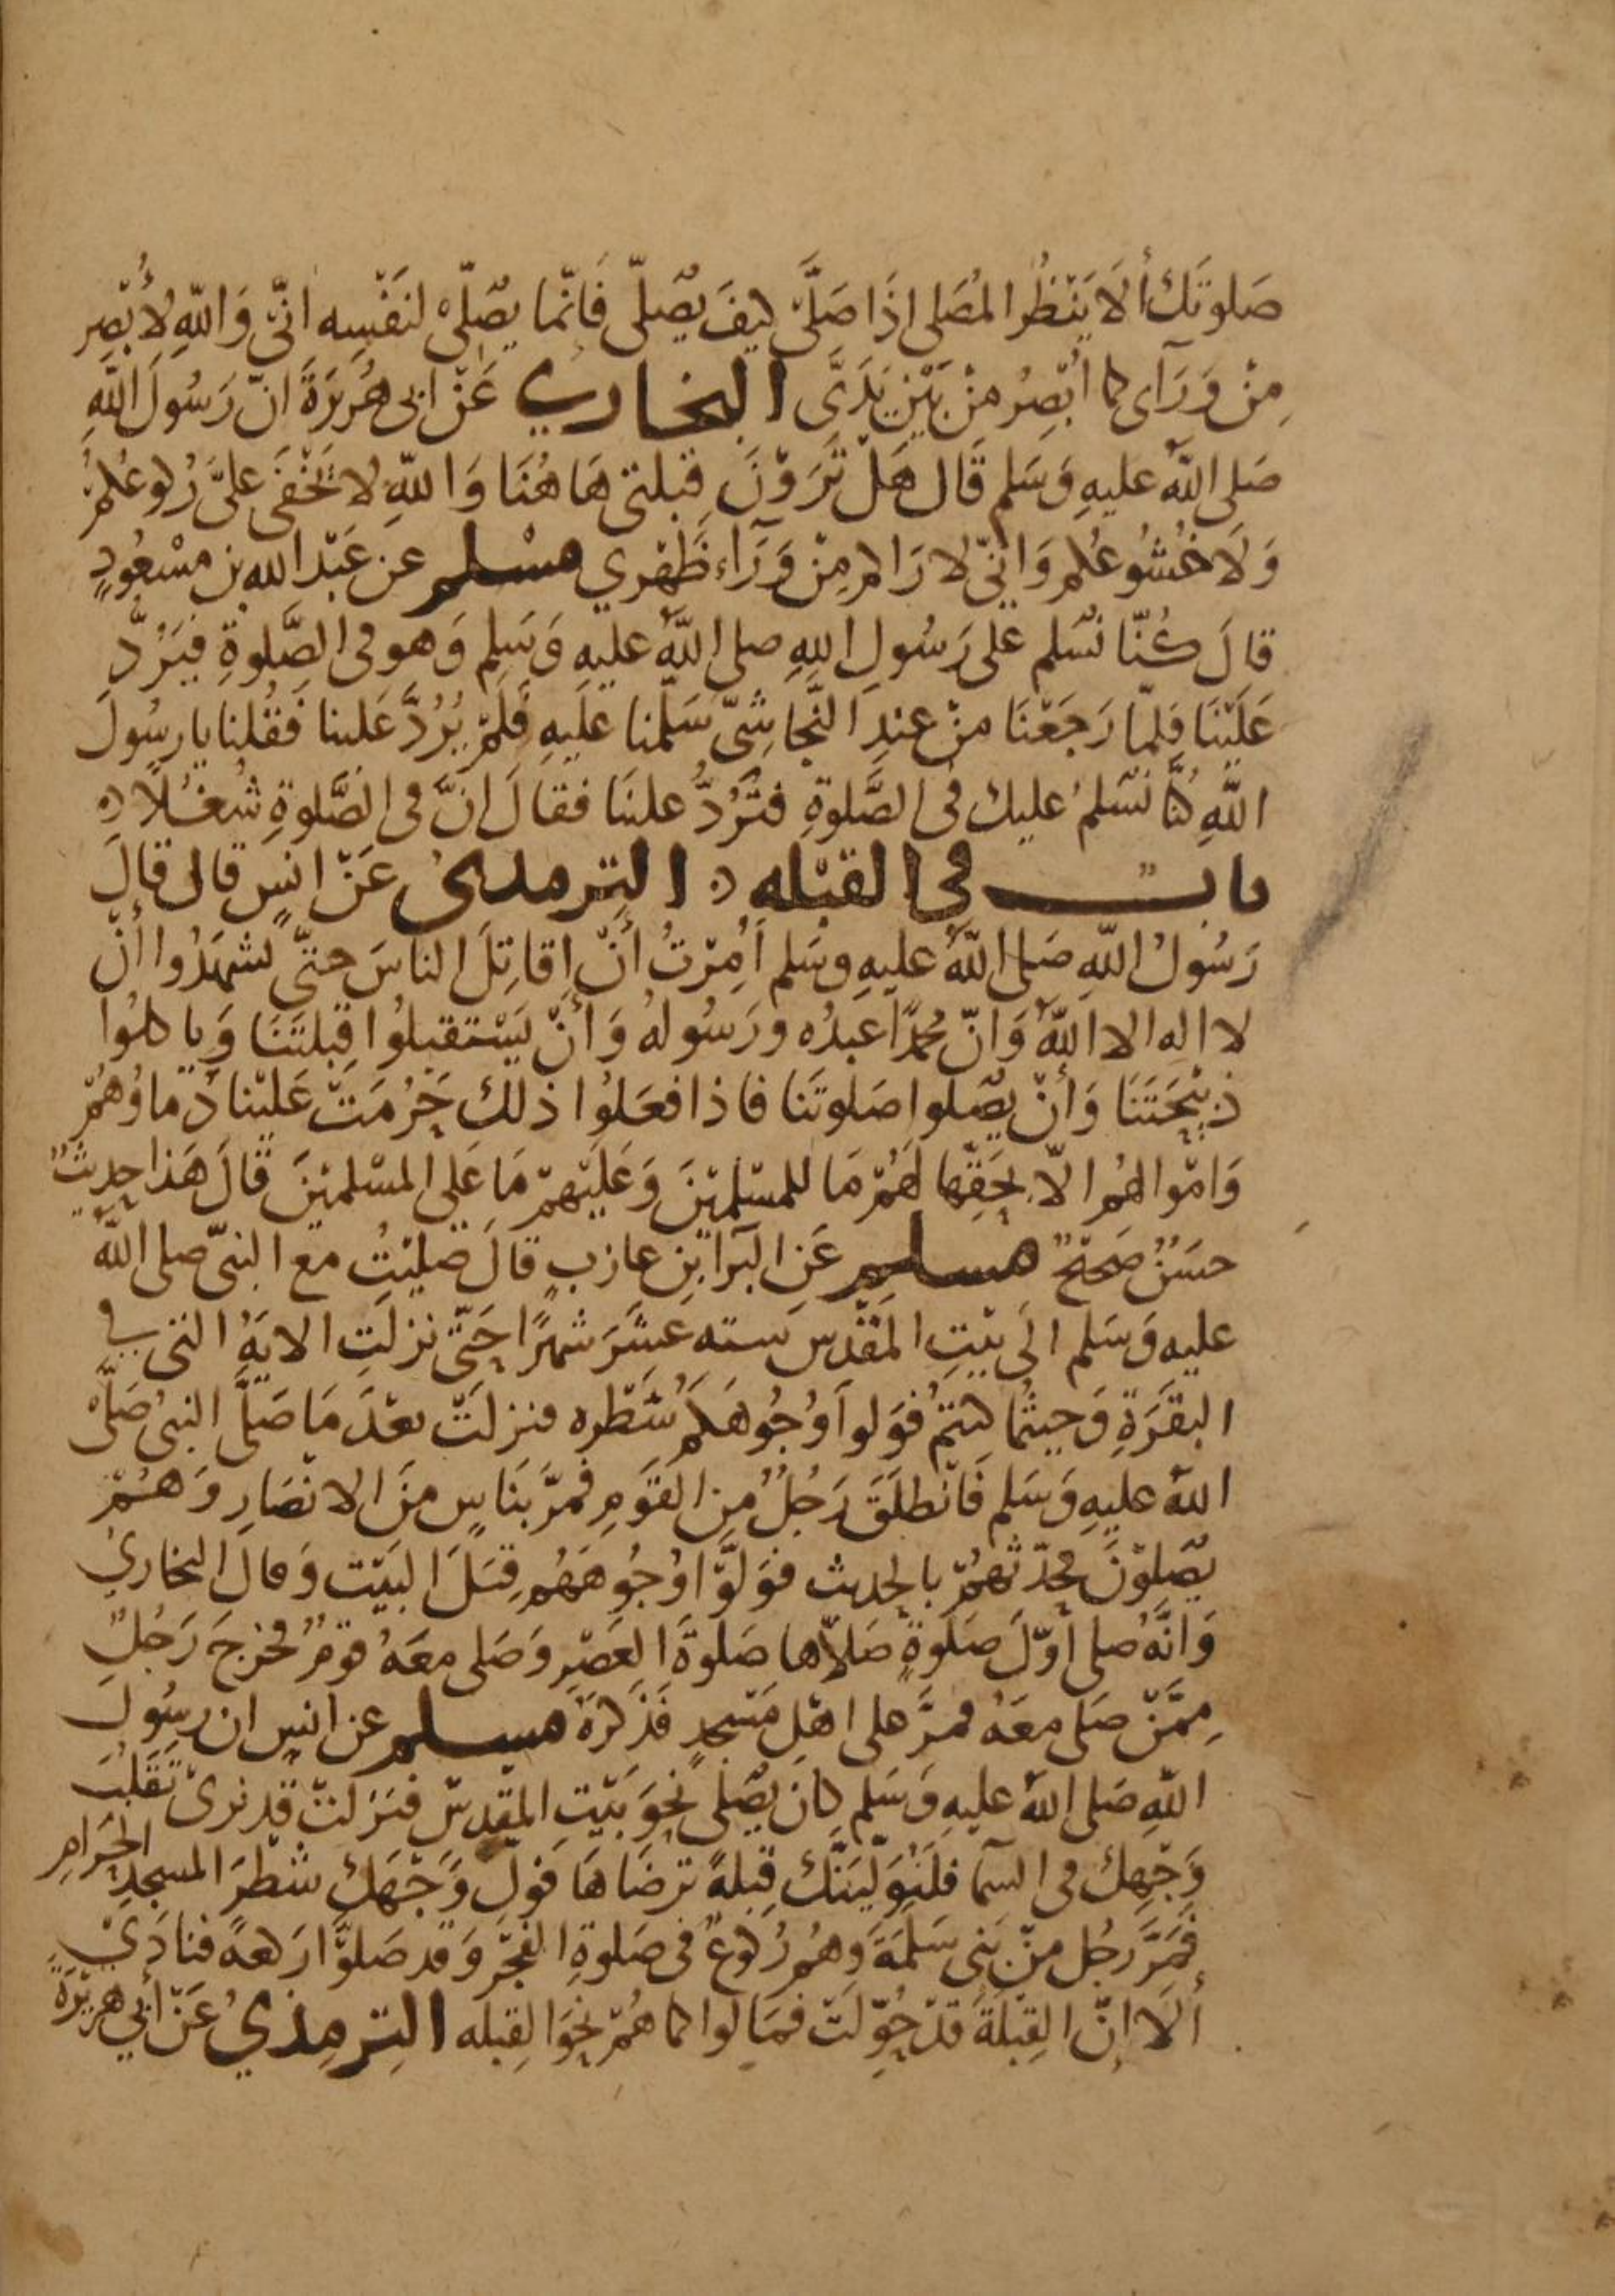 صَلوتَك ألَا يَنْظُر المُصَلى اذَا صَلَّى كيفَ يُصَلّى فَانّما يُصَلّى لنَفْسِه انّى وَاللّهِ لأُبْصِر
مِنْ وَرَآى كما أُبْصِرُ مِنْ بَيْن يَدَىَّ البخاري عَنْ ابى هُرَيرَةَ انّ رَسُولَ اللّهِ
صَلى اللّهُ عليهِ وَسَلم قَال هَلْ تَرَوْنَ قِبلتى هَا هُنَا وَاللّهِ لا يَخْفَى علىَّ رُكوعُكمْ
وَلَا خُشُوعُكم وَانّى لارَاكم مِنْ وَرَآءِ ظَهْرِي مسْلم عن عَبْد الله بن مسْعُودٍ
قالَ كُنّا نُسَلم على رَسُولِ اللهِ صلى اللّهُ عليهِ وَسَلم وَهو فى الصَّلوةِ فيَرُدُّ
عَلَيْنَا فلَمّا رَجَعْنَا مِنْ عندِ النَّجاشِىّ سَلّمنا علَيهِ فلَمْ يَرُدَّ عَلينا فَقُلنا يا رسُولَ
اللّهِ كُنَّا نُسَلمُ عليك فى الصَّلوةِ فتَرُدُّ علينَا فقالَ انَّ فى الصَّلوةِ شُغْلًا
باب في القبْله الترمدىُ عَنْ انسٍ قال قالَ
رَسُولُ اللّهِ صَلى اللّهُ عليهِ وسَلم أُمِرْتُ أَنْ اقاتِلَ الناسَ حتىّ يشهَدُوا أنْ
لا اله الا اللّهُ وَانّ محمدًا عبدُه ورَسُولهُ وَأنْ يَسْتقبِلُوا قِبلتَنَا وَياكلُوا
ذبيْحَتَنَا وَأنْ يُصَلوا صَلوتَنا فاذا فعَلُوا ذلكَ حَرُمَتْ عَليْنا دِماؤهُمْ
وَامْوالهُم الّا بِحَقّها لَهُمْ مَا للمسْلِمِيْنَ وَعَلَيْهِمْ مَا عَلى المسْلمِيْنَ قَالَ هَذا حديثٌ
حسَنٌ صَحيْحٌ مسلم عَنِ البَرآ ابْنِ عازبٍ قالَ صَليْتُ مع النبىّ صلى اللّهُ
عليهِ وَسَلم الَى بيْتِ المَقْدس سته عَشَرَ شهرًا حَتّى نزلتِ الايَةُ التى في
البقَرَةِ وَحيثُما كنتمْ فوَلوا وُجُوهَكمْ شَطْره فنزلَتْ بعْدَ مَا صَلَّى النبىُ صَلَّى
اللّهُ عليهِ وَسَلم فَانطلَقَ رَجُلٌ مِن القَومِ فمَرَّ بنَاسٍ مِنَ الانصَارِ وَهُمْ
يُصَلوْنَ فحدّثهُمْ بالحديث فوَلوَّا وُجُوهَهُم قِبَلَ البَيْت وَقالَ البخارىُ
وَانَّهُ صلى أوّلَ صَلوةٍ صَلاّها صَلوةَ العَصْرِ وَصَلى معَهُ قومٌ فخرجَ رَجُلٌ
مِمَّنْ صَلى معَهُ فمرَّ على اهْلِ مَسْجدٍ فَذَكرَهُ مسلم عن انسٍ ان رسُولَ
اللّهِ صَلى اللّهُ عليهِ وَسَلم كانَ يُصَلى نحوَ بَيْتِ المقدسْ فنَزلتْ قدْ نرىْ تَقَلبَ
وَجْهِكَ فى السمَآ فلَنُوَليَنَّكَ قِبلةً ترضَاهَا فولّ وَجْهَكَ شَطْرَ المسجدِ الحَرَامِ
فمَرَّ رجُل مِنْ بَنِى سَلِمَةَ وَهُم رُكوعٌ فى صَلوةِ الفجْرِ وَقد صَلوَّا ركعةً فنادَىْ
ألَا انَّ القِبْلَةَ قدْ حُوّلَتْ فمَالوا كما هُمْ نحوَ القِبله الترمذيُ عَنْ أبي هريْرَةَ